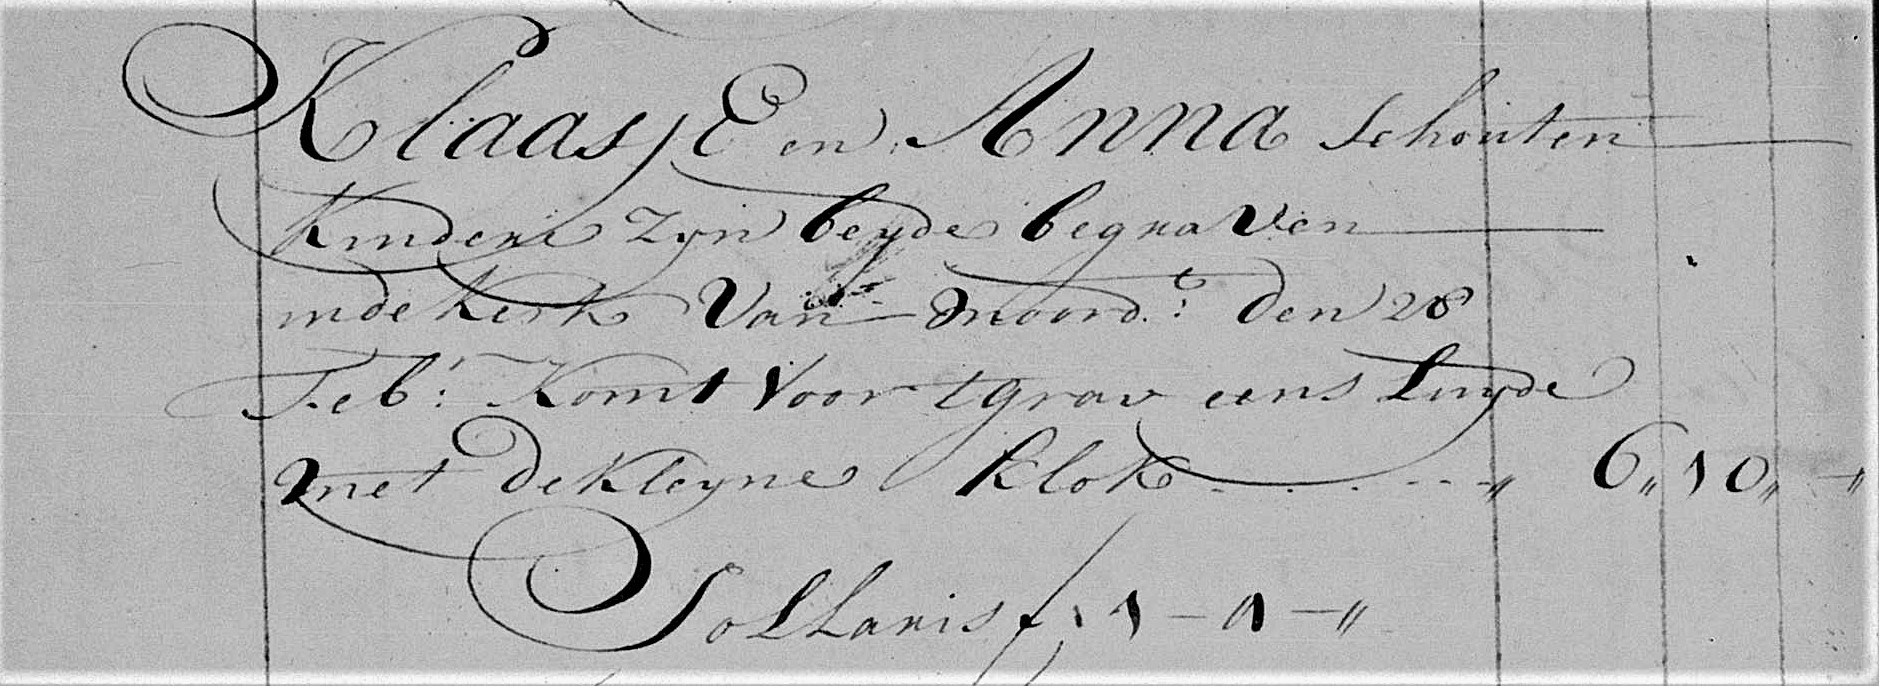 KlaasjE en Anna Schouten
Kindere Zyn beyde begraven
indekerk Van noord: den 28
Feb: Komt Voor tgrav eens Luyde
met dekleyne klok . . . . . „ 6„ 10„ –„
Sollaris f 1 – 1 – „